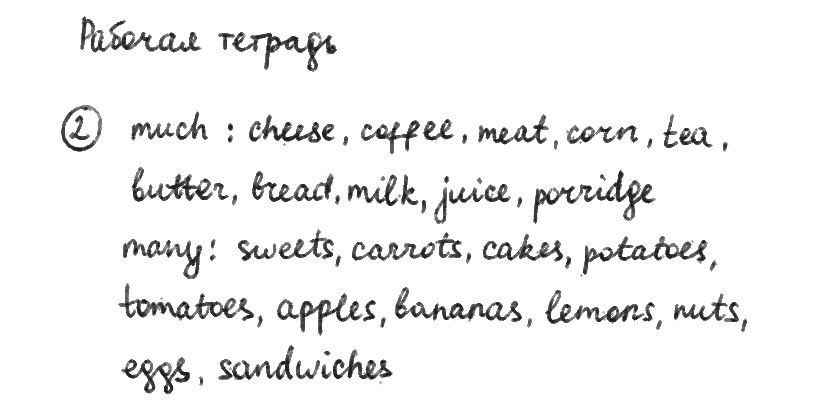 Рабочая тетрадь
② much : cheese, coffee, meat, corn, tea,
butter, bread, milk, juice, porridge
many: sweets, carrots, cakes, potatoes,
tomatoes, apples, bananas, lemons, nuts,
eggs, sandwiches